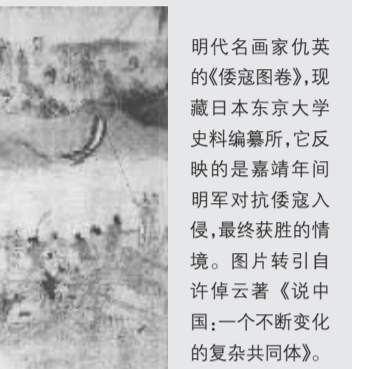 明代名画家仇英
的《倭寇图卷》,现
藏日本东京大学
史料编纂所,它反
映的是嘉靖年间
明军对抗倭寇入
侵,最终获胜的情
境。图片转引自
许倬云著《说中
国:一个不断变化
的复杂共同体》。